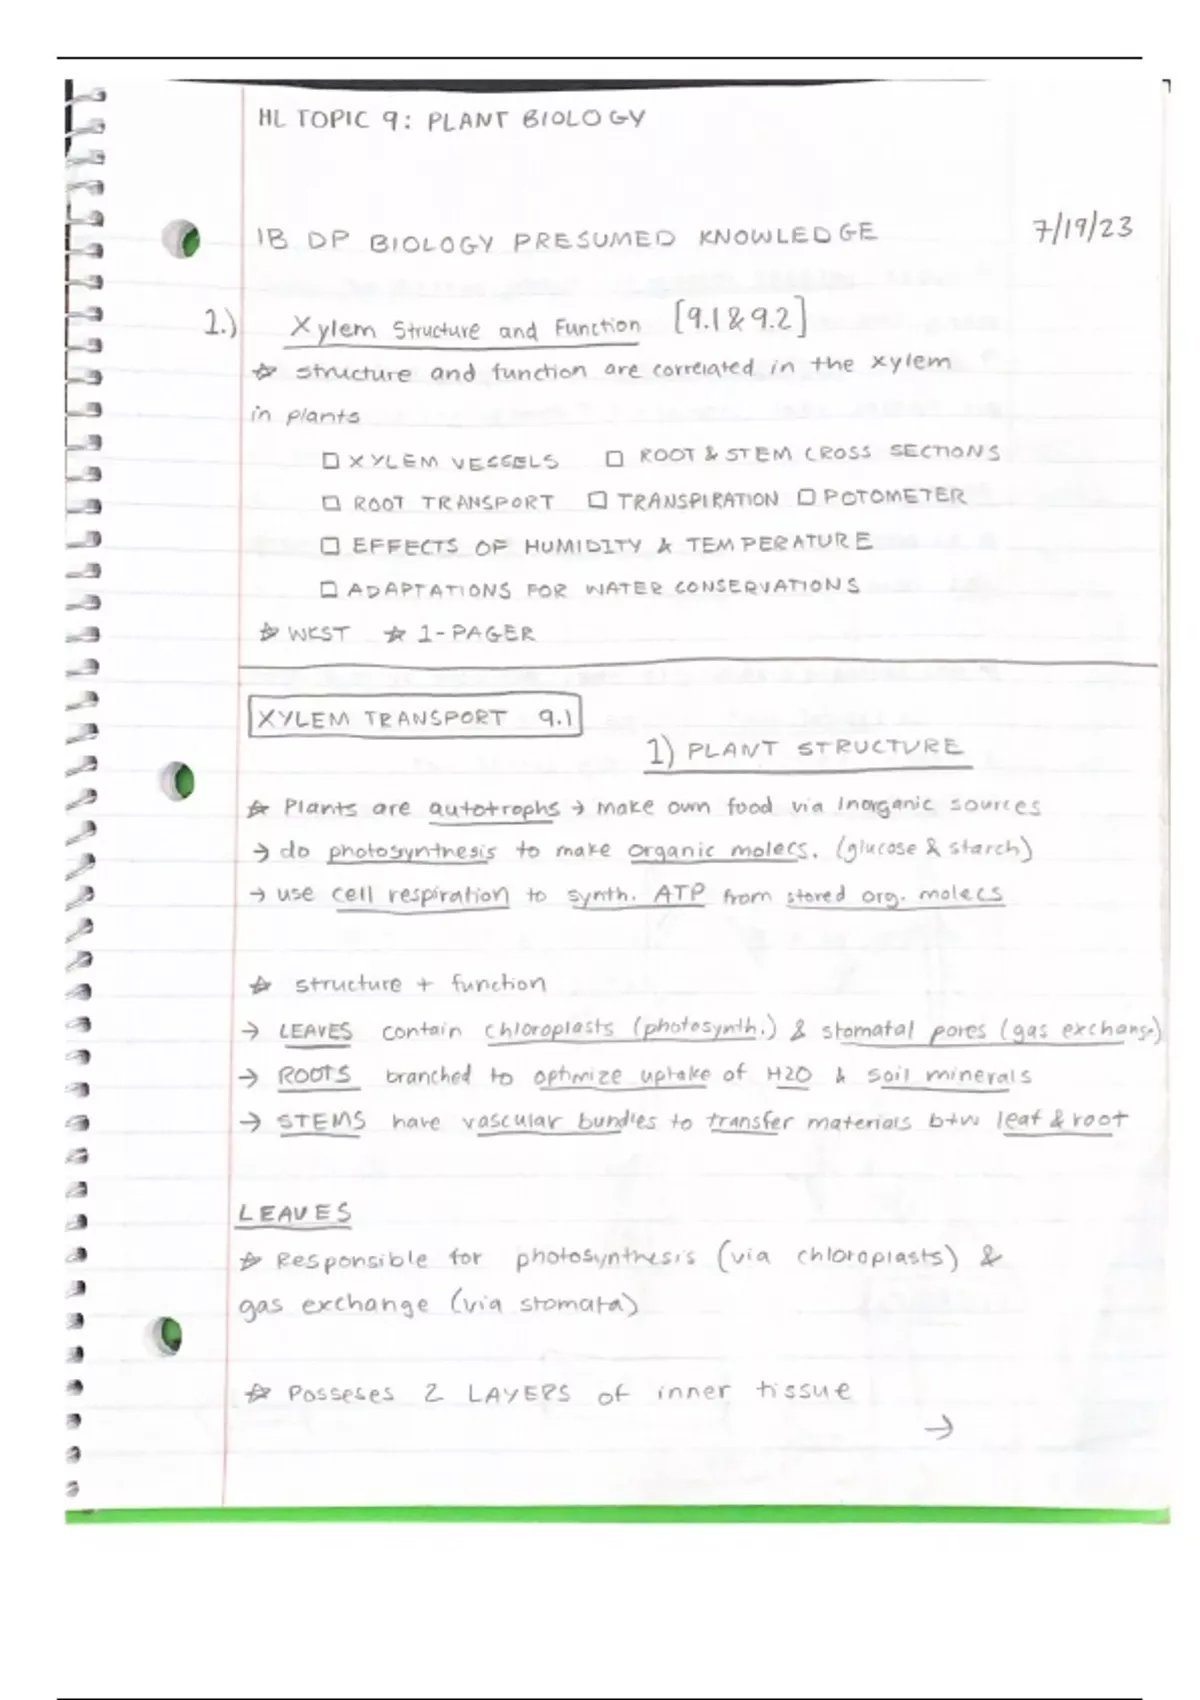 HL TOPIC 9: PLANT BIOLOGY
IB DP BIOLOGY PRESUMED KNOWLEDGE 7/19/23
1.) Xylem Structure and Function [9.1 & 9.2]
☆ structure and function are correlated in the xylem
in plants
□ XYLEM VESSELS □ ROOT & STEM CROSS SECTIONS
□ ROOT TRANSPORT □ TRANSPIRATION □ POTOMETER
□ EFFECTS OF HUMIDITY & TEMPERATURE
□ ADAPTATIONS FOR WATER CONSERVATIONS
☆ WKST ☆ 1-PAGER
XYLEM TRANSPORT 9.1
1) PLANT STRUCTURE
☆ Plants are autotrophs → make own food via Inorganic sources
→ do photosynthesis to make organic molecs. (glucose & starch)
→ use cell respiration to synth. ATP from stored org. molecs
☆ structure + function
→ LEAVES contain chloroplasts (photosynth.) & stomatal pores (gas exchange)
→ ROOTS branched to optimize uptake of H2O & soil minerals
→ STEMS have vascular bundles to transfer materials btw leaf & root
LEAVES
☆ Responsible for photosynthesis (via chloroplasts) &
gas exchange (via stomata)
☆ Posseses 2 LAYERS of inner tissue
→